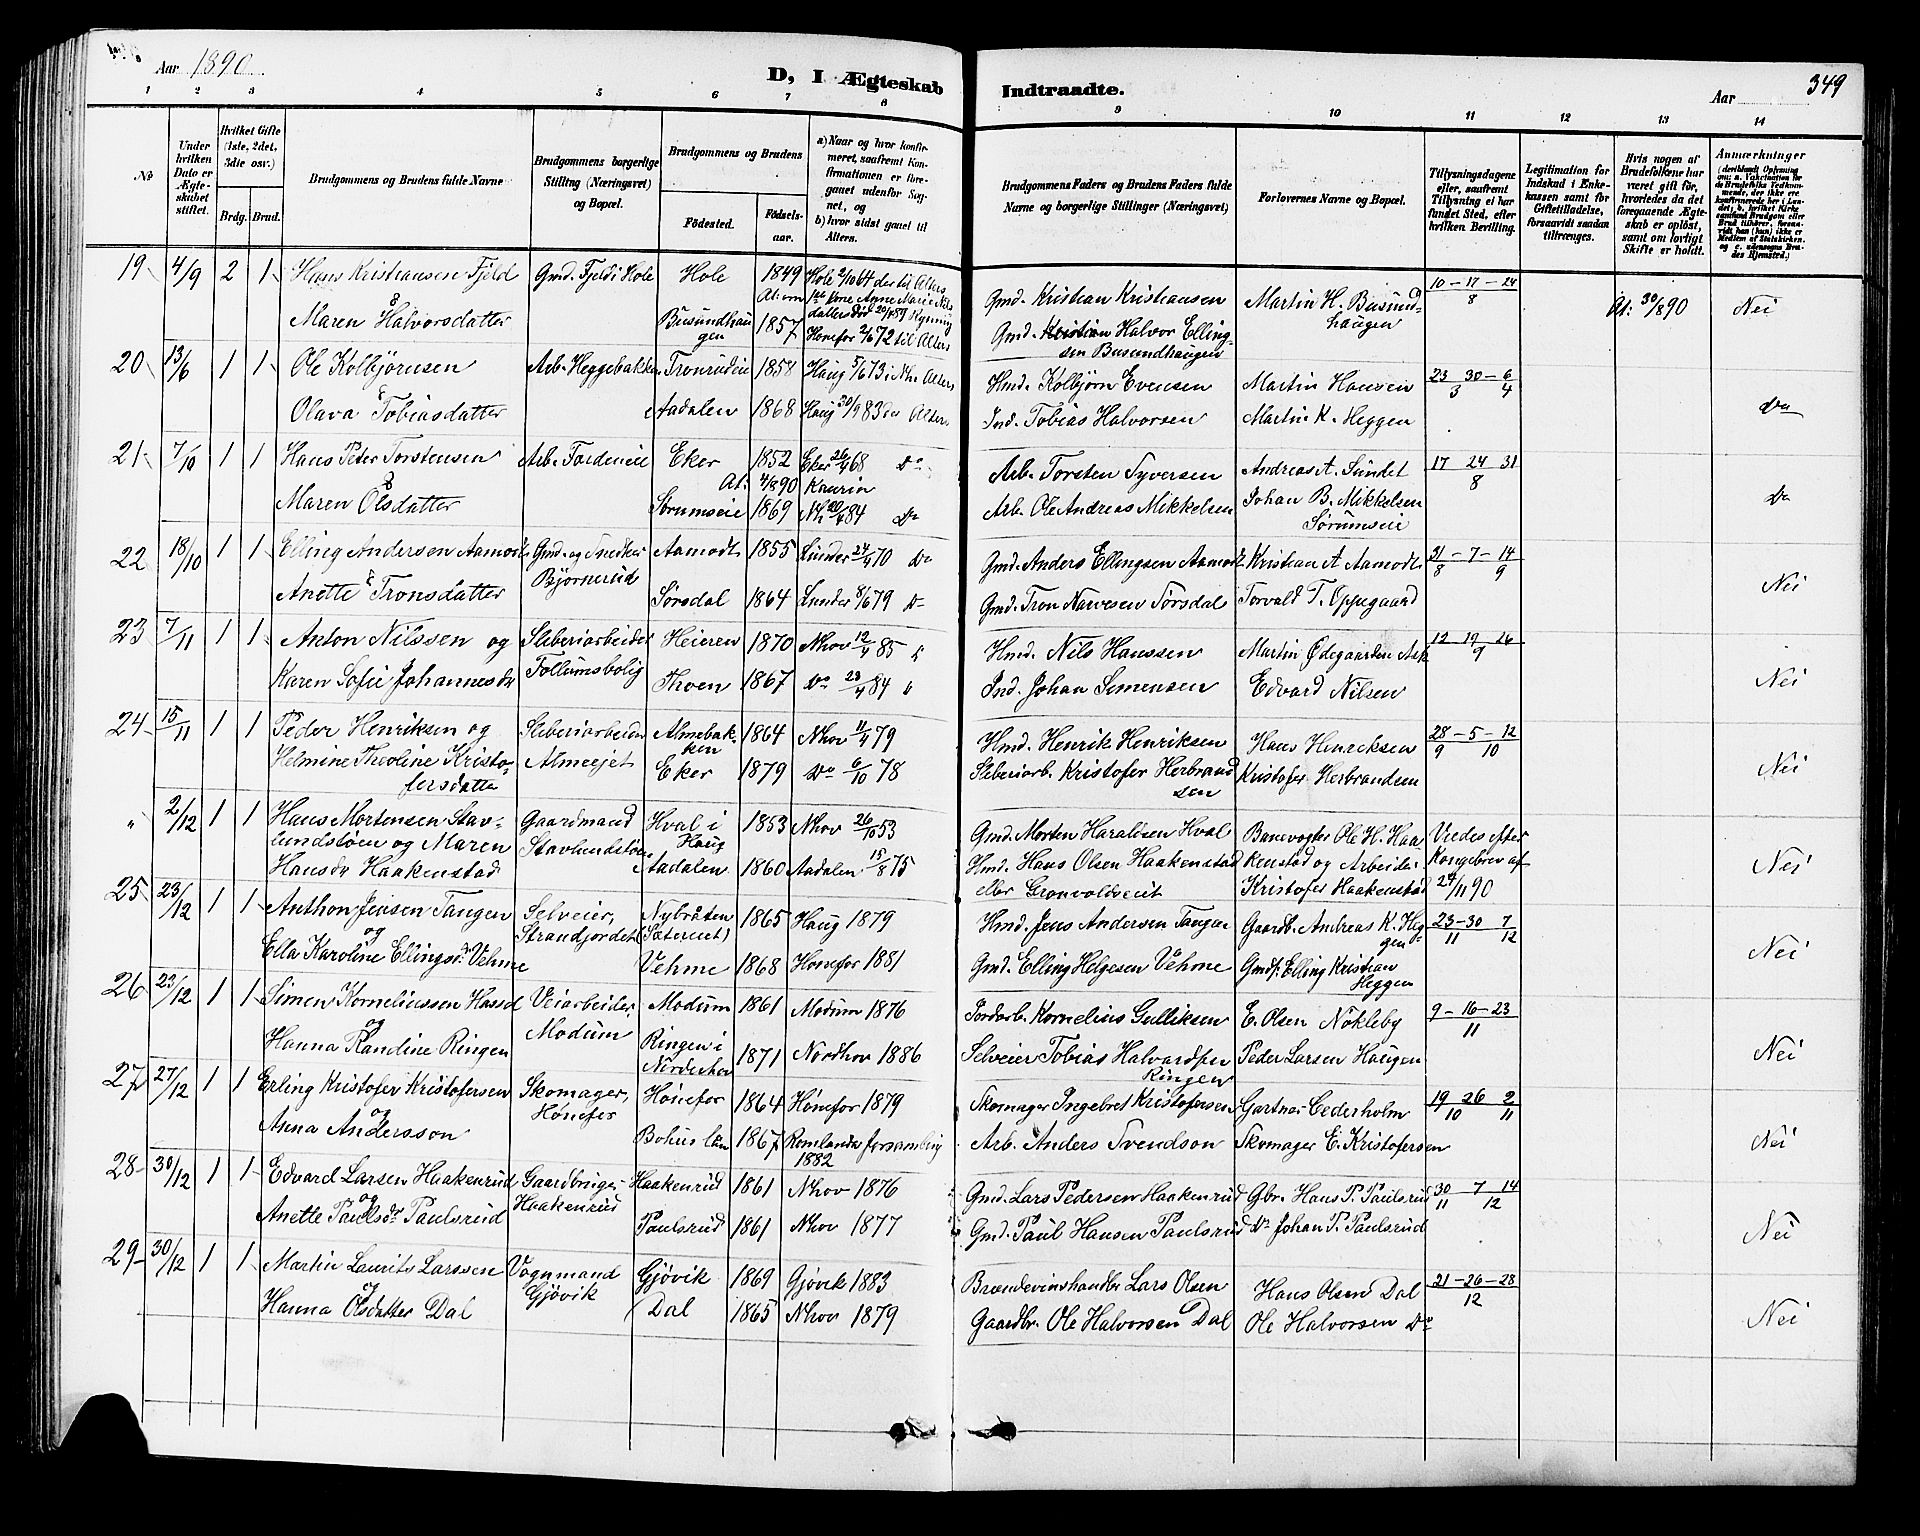 Aar 1890
D, I Ægteskab Indtraadte.
Aar
349
1 2 3 4 5 6 7 8 9 10 11 12 13 14
No
Under hvilken Dato er Ægteskabet stiftet.
Hvilket Gifte (1ste, 2det, 3die osv.)
Brdg. Brud.
Brudgommens og Brudens fulde Navne
Brudgommens borgerlige Stilling (Næringsvei) og Bopæl.
Brudgommens og Brudens
Fødested. Fødselsaar.
a) Naar og hvor konfirmeret, saafremt Konfirmationen er foregaaet udenfor Sognet, og
b) hvor sidst gaaet til Alters.
Brudgommens Faders og Brudens Faders fulde Navne og borgerlige Stillinger (Næringsvei)
Forlovernes Navne og Bopæl.
Tillysningsdagene eller, saafremt Tillysning ei har fundet Sted, efter hvilken Bevilling.
Legitimation for Indskud i Enkekassen samt for Giftetilladelse, forsaavidt saadan tiltrænges.
Hvis nogen af Brudefolkene har været gift før, hvorledes da det foregaaende Ægteskab er opløst, samt om lovligt Skifte er holdt.
Anmærkninger
19 4/9 2 1 Hans Kristiansen Fjeld Gmd. Fjeld i Hole Hole 1849 Hole 2/10 64 der til Alters Gmd. Kristian Kristiansen Martin H. Busundhaugen 10-17-24/8 At: 30/8 90 Nei
At: om 1ste Kone Anne Marie Nilsdatters Död 20/4 89
& Maren Halvorsdatter Busundhaugen 1857 Honefos 2/6 72 til Alters Gmd. Halvor Ellingsen Busundhaugen
20 13/6 1 1 Ole Kolbjörnsen Arb. Heggebakken Tronrudeie 1858 Haug 5/6 73 i Nh. Alters Hmd. Kolbjørn Evensen Martin Hansen 23 30 6/3 4 Do
& Olava Tobiasdatter Aadalen 1868 Haug 30/9 83 do Alters Ind. Tobias Halvorsen Martin K. Heggen
21 7/10 1 1 Hans Peter Torstensen Arb. Eker 1852 Eker 26/4 68 Do Arb. Torsten Syversen Andreas A. Sundet 17 24 31/8 Do
At: 4/8 90 Kaurin
& Maren Olsdatter Sörumseie 1869 Nh 20/4 84 Do Arb. Ole Andreas Mikkelsen Johan B. Mikkelsen Sørumseie
22 18/10 1 1 Elling Andersen Aamodt Gmd. og Snedker Bjørnerud Aamodt 1855 Lunder 24/4 70 Do Gmd. Anders Ellingsen Aamodt Kristian A Aamodt 31-7-14/8 9 Nei
& Anette Tronsdatter Sørsdal 1864 Lunder 8/6 79 Do Gmd. Tron Narvesen Sørsdal Torvald T. Oppegaard
23 7/11 1 1 Anton Nilssen og Sliberiarbeider Follumsbolig Heieren 1870 Nhov 12/4 85 Hmd. Nils Hanssen Martin Ødegaarden Ask 12 19 26/9 Nei
Karen Sofie Johannesdr Thoen 1867 Do 23/4 84 Ind. Johan Simensen Edvard Nilsen
24 15/11 1 1 Peder Henriksen og Sliberiarbeider Almeejet Almebakken 1864 Nhov 11/4 79 Hmd. Henrik Henriksen Hans Henriksen 28-5-12/9 10 Nei
Helmine Theoline Kristofersdatter Eker 1879 Do 6/10 78 Sliberiarb. Kristofer Herbrandsen Kristofer Herbrandsen
" 2/12 1 1 Hans Mortensen Stavlundstøen og Maren Hansdr Haakenstad Gaardmand Stavlundstøen Hval i Haug 1853 Nhov 26/10 53 Gmd. Morten Haraldsen Hval Banevogter Ole H. Haakenstad og Arbeider Kristofer Haakenstad Viedes efter Kongebrev af 24/11 90 Nei
Aadalen 1860 Aadalen 15/8 75 Hmd. Hans Olsen Haakenstad eller Gronvoldveiet
25 23/12 1 1 Anthon Jensen Tangen Selveier, Strandjordet Nybråten (Sætereiet) 1865 Haug 1879 Hmd. Jens Andersen Tangen Gaardb. Andreas K. Heggen 23-30 7/11 12 Nei
og Ella Karoline Ellingsdr. Vehme Vehme 1868 Honefos 1881 Gmd. Elling Helgesen Vehme Gmdf. Elling Kristian Heggen
26 23/12 1 1 Simen Korneliussen Hassel Veiarbeider, Modum Modum 1861 Modum 1876 Jordarb. Kornelius Gulliksen E. Olsen Nökleby 9-16-23/11 Nei
og Hanna Randine Ringen Ringen i Norderhov 1871 Nordhov 1886 Selveier Tobias Halvardsen Ringen Peder Larsen Haugen
27 27/12 1 1 Erling Kristofer Kristofersen Skomager, Hönefos Hönefos 1864 Hönefos 1879 Skomager Ingebret Kristofersen Gartner Cederholm 19 26 2/10 11 Nei
og Anna Andersson Bohus Län 1867 Romlanda forsamling 1882 Arb. Anders Svendson Skomager E. Kristofersen
28 30/12 1 1 Edvard Larsen Haakenrud Gaardbruger Haakenrud Haakenrud 1861 Nhov 1876 Gmd. Lars Pedersen Haakenrud Gbr. Hans P. Paulsrud 30 7 14/11 12 Nei
og Anette Paulsdr Paulsrud Paulsrud 1861 Nhov 1877 Gmd. Paul Hansen Paulsrud Do Johan P. Paulsrud
29 30/12 1 1 Martin Laurits Larssen Vognmand Gjövik Gjövik 1869 Gjövik 1883 Brændevinshandler Lars Olsen Hans Olsen Dal 21-26-28/12 Nei
og Hanna Olsdatter Dal Dal 1865 Nhov 1879 Gaardbr. Ole Halvorsen Dal Ole Halvorsen Do